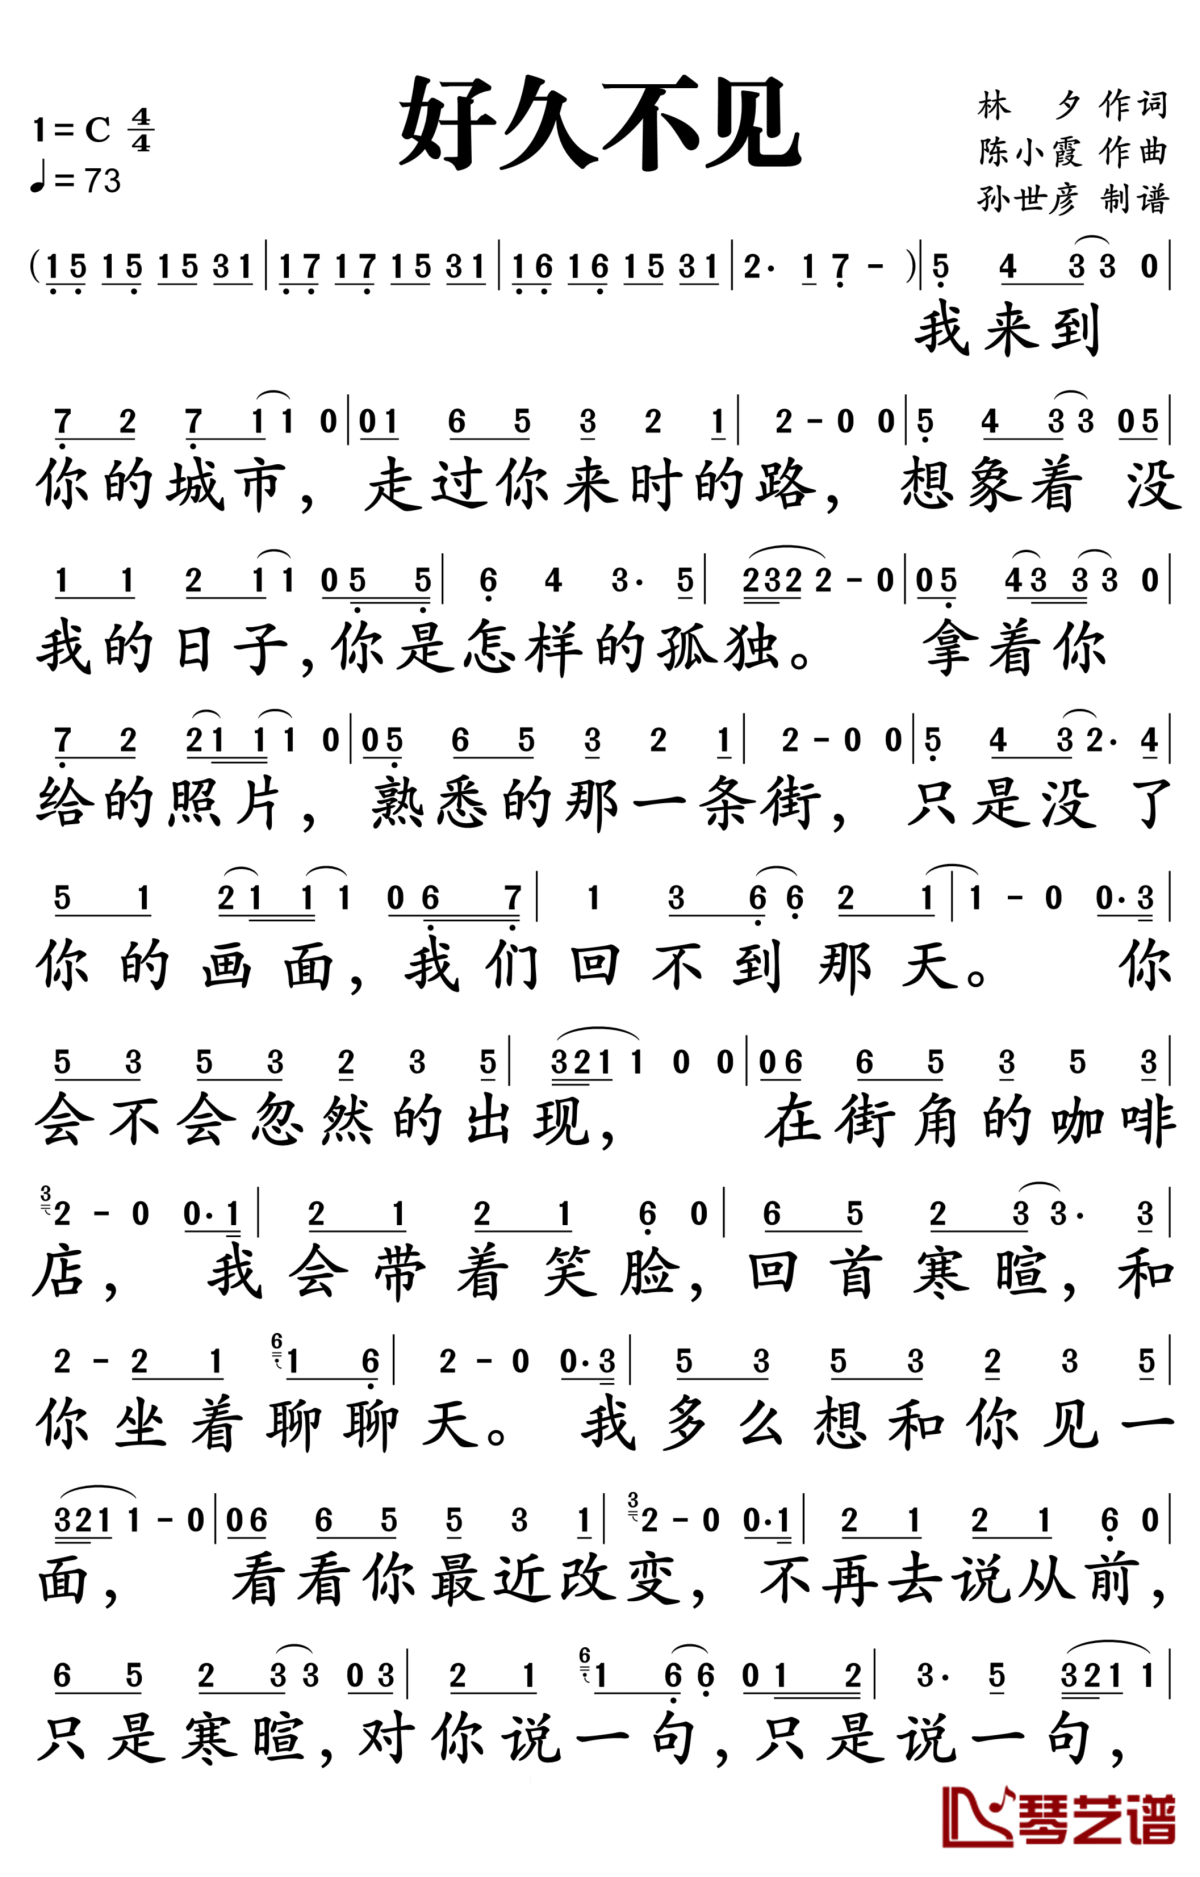 好久不见
1=C 4/4
♩=73
林 夕 作词
陈小霞 作曲
孙世彦 制谱
(15 15 15 31|17 17 15 31|16 16 15 31|2· 1 7 - )|5 4 3 3 0|
我来到
7 2 7 1 1 0|01 6 5 3 2 1|2 - 0 0|5 4 3 3 05|
你的城市，走过你来时的路，想象着 没
1 1 2 1 1 05 5|6 4 3· 5|232 2 - 0|05 43 3 3 0|
我的日子，你是怎样的孤独。 拿着你
7 2 21 1 1 0|05 6 5 3 2 1|2 - 0 0|5 4 3 2· 4|
给的照片，熟悉的那一条街，只是没了
5 1 21 1 1 06 7|1 3 6 6 2 1|1 - 0 0·3|
你的画面，我们回不到那天。 你
5 3 5 3 2 3 5|321 1 0 0|06 6 5 3 5 3|
会不会忽然的出现， 在街角的咖啡
3 2 - 0 0·1|2 1 2 1 6 0|6 5 2 3 3· 3|
店， 我会带着笑脸，回首寒暄，和
2 - 2 1 6 1 6|2 - 0 0·3|5 3 5 3 2 3 5|
你坐着聊聊天。我多么想和你见一
321 1 - 0|06 6 5 5 3 1|3 2 - 0 0·1|2 1 2 1 6 0|
面， 看看你最近改变，不再去说从前，
6 5 2 3 3 03|2 1 6 1 6 6 01 2|3· 5 321 1|
只是寒暄，对你说一句，只是说一句，
琴艺谱